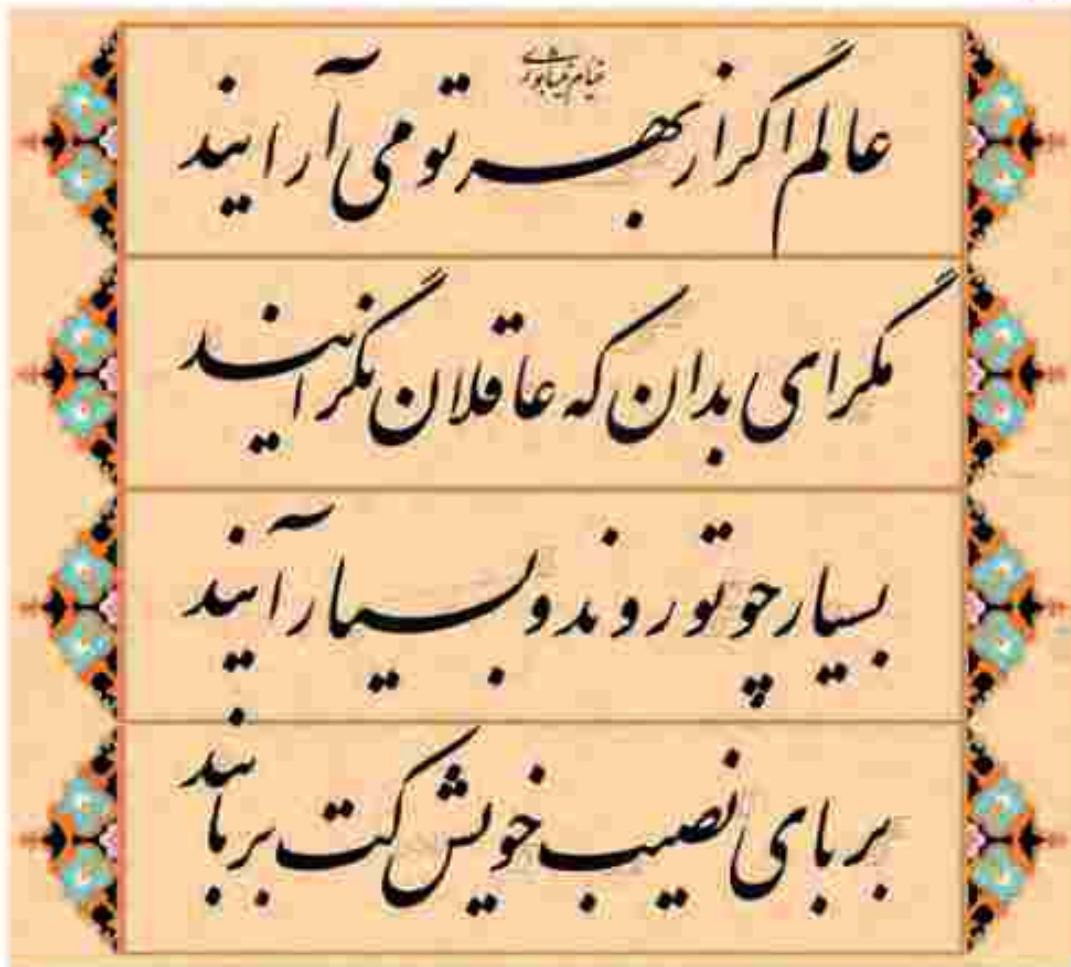 خیام نیشابوری
عالم اگر از بهر تو می آرایند
مگرای بدان که عاقلان نگرایند
بسیار چو تو روند و بسیار آیند
بربای نصیب خویش کت بربایند